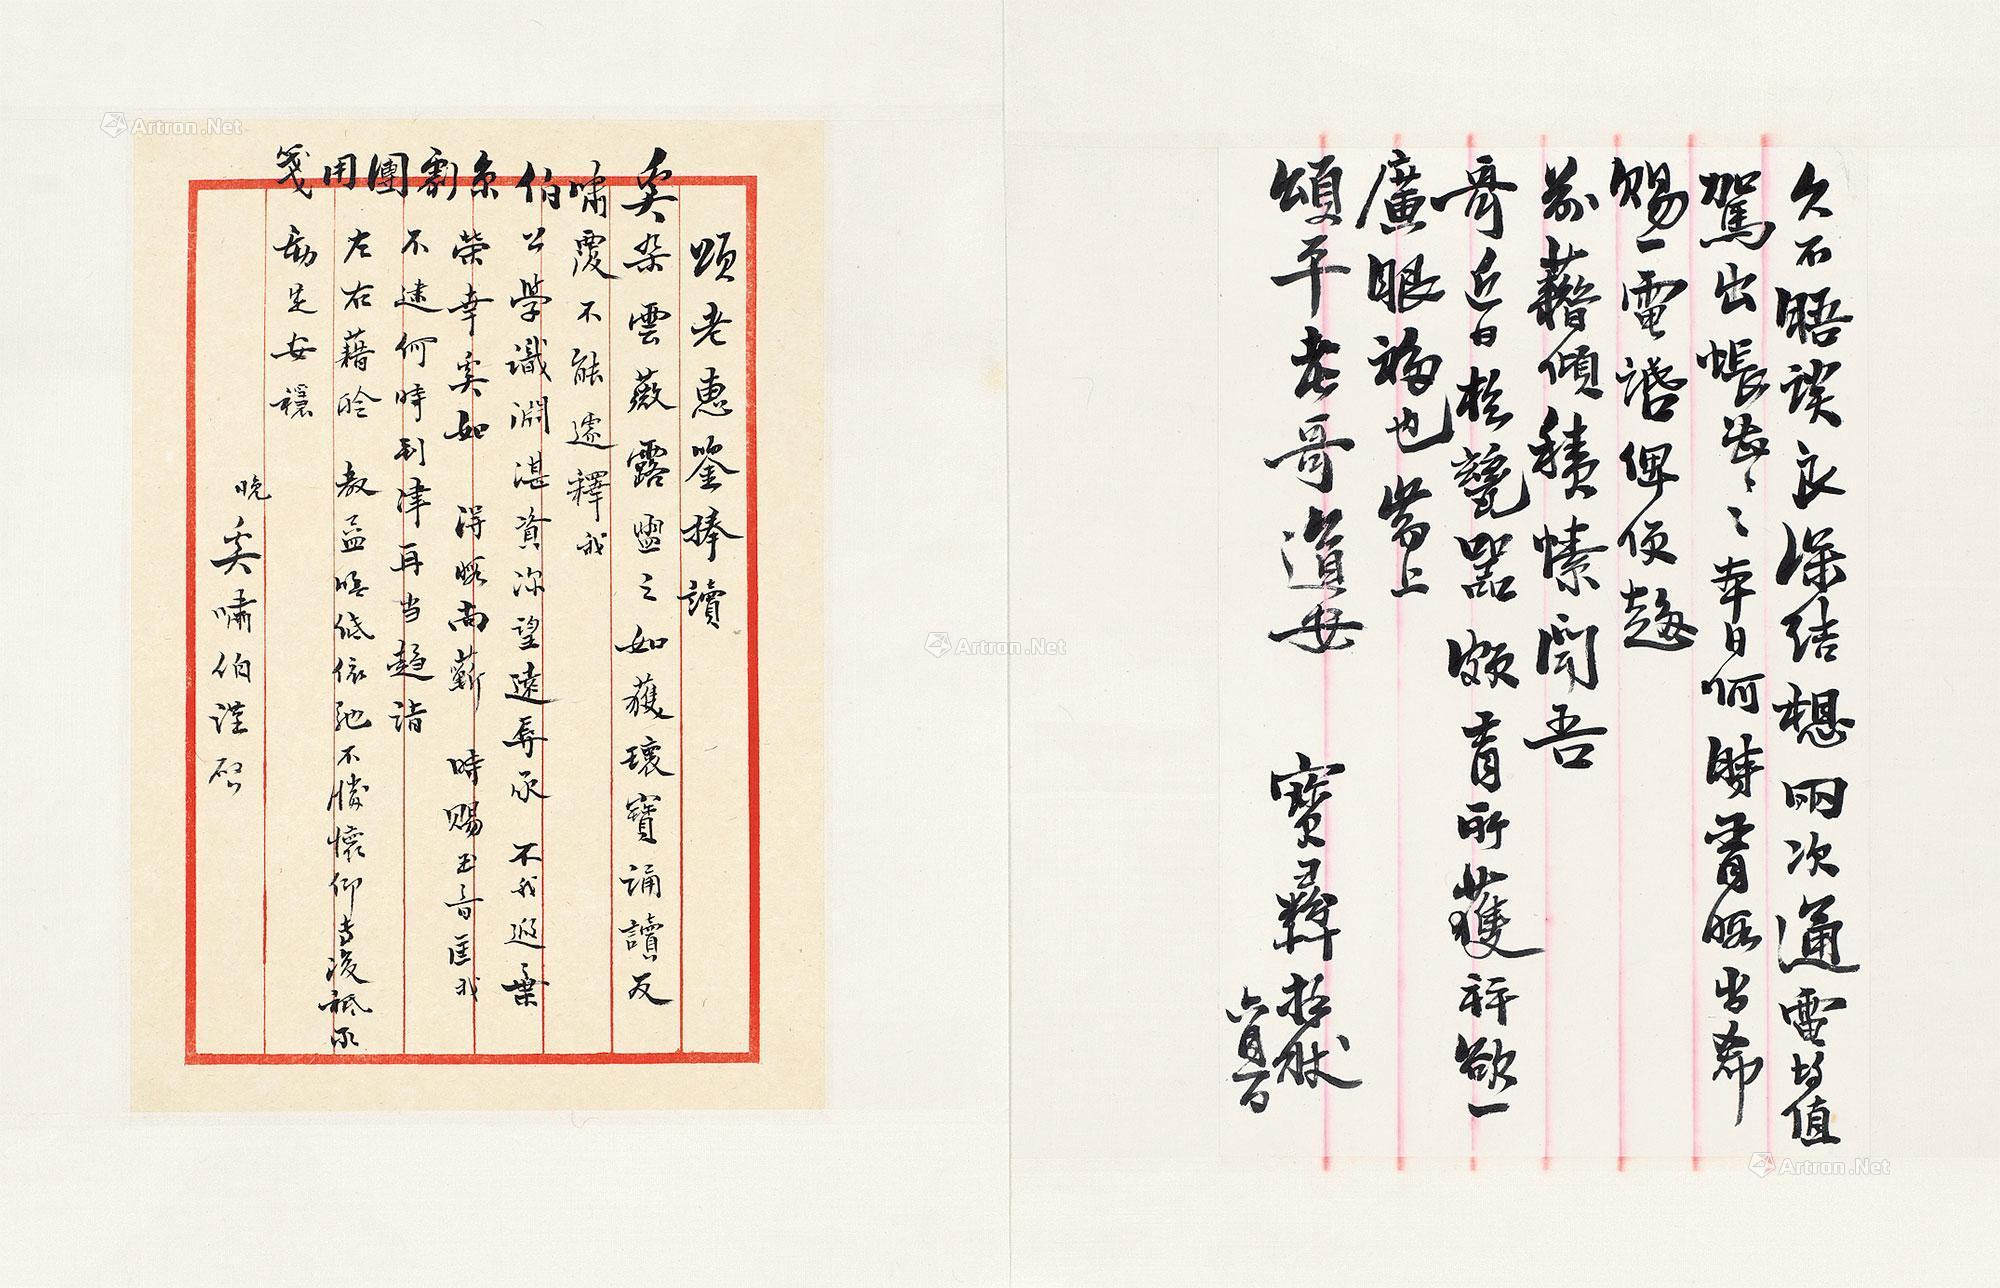 久不晤談良深結想兩次通電均值
駕出悵悵之至本日何時有暇尚希
賜一電話俾便趨
前藉傾積愫聞吾
哥近日於瓷器頗有所獲祈欲一
廣眼福也崇上
頌平老哥道安 寶彝拜启
六月一日
奚嘯伯京劇團用箋
頌老惠鑒捧讀
朵雲薇露盥之如獲瓌寶誦讀反
覆不能遽釋我
公學識淵湛資深望遠辱承 不我遐棄
榮幸奚如 得暇尚蘄 時賜玉音匡我
不逮何時到津再当趨詣
左右藉聆 教益臨紙依馳不勝懷仰专復祗承
動定安穩
晚奚嘯伯謹啓
Artron.Net
Artron.Net
Artron.Net